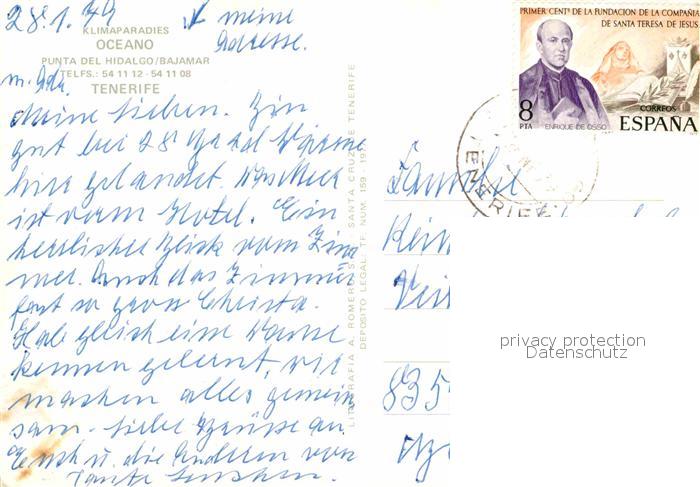 28.1.79
meine
Adresse.
KLIMAPARADIES
OCEANO
PUNTA DEL HIDALGO/BAJAMAR
TELFS.: 54 11 12 - 54 11 08
TENERIFE
m. Adr.
Meine Lieben. Bin
gut bei 28 Grad Wärme
hier gelandet. Das Meer
ist vorm Hotel. Ein
herrlicher Blick vom Zim
mer. Auch das Zimmer
fast so gross Christa.
Hab gleich eine Dame
kennen gelernt, wir
machen alles gemein
sam. Liebe Grüße an
Euch u. die Anderen von
Tante
LITOGRAFIA A. ROMERO, S. A. SANTA CRUZ DE TENERIFE
DEPOSITO LEGAL: TF. NUM. 159 - 19
PRIMER CENTº DE LA FUNDACION DE LA COMPAÑIA
DE SANTA TERESA DE JESUS
8
PTA
ENRIQUE DE OSSO
CORREOS
ESPAÑA
TENERIFE
Familie
835
privacy protection
Datenschutz